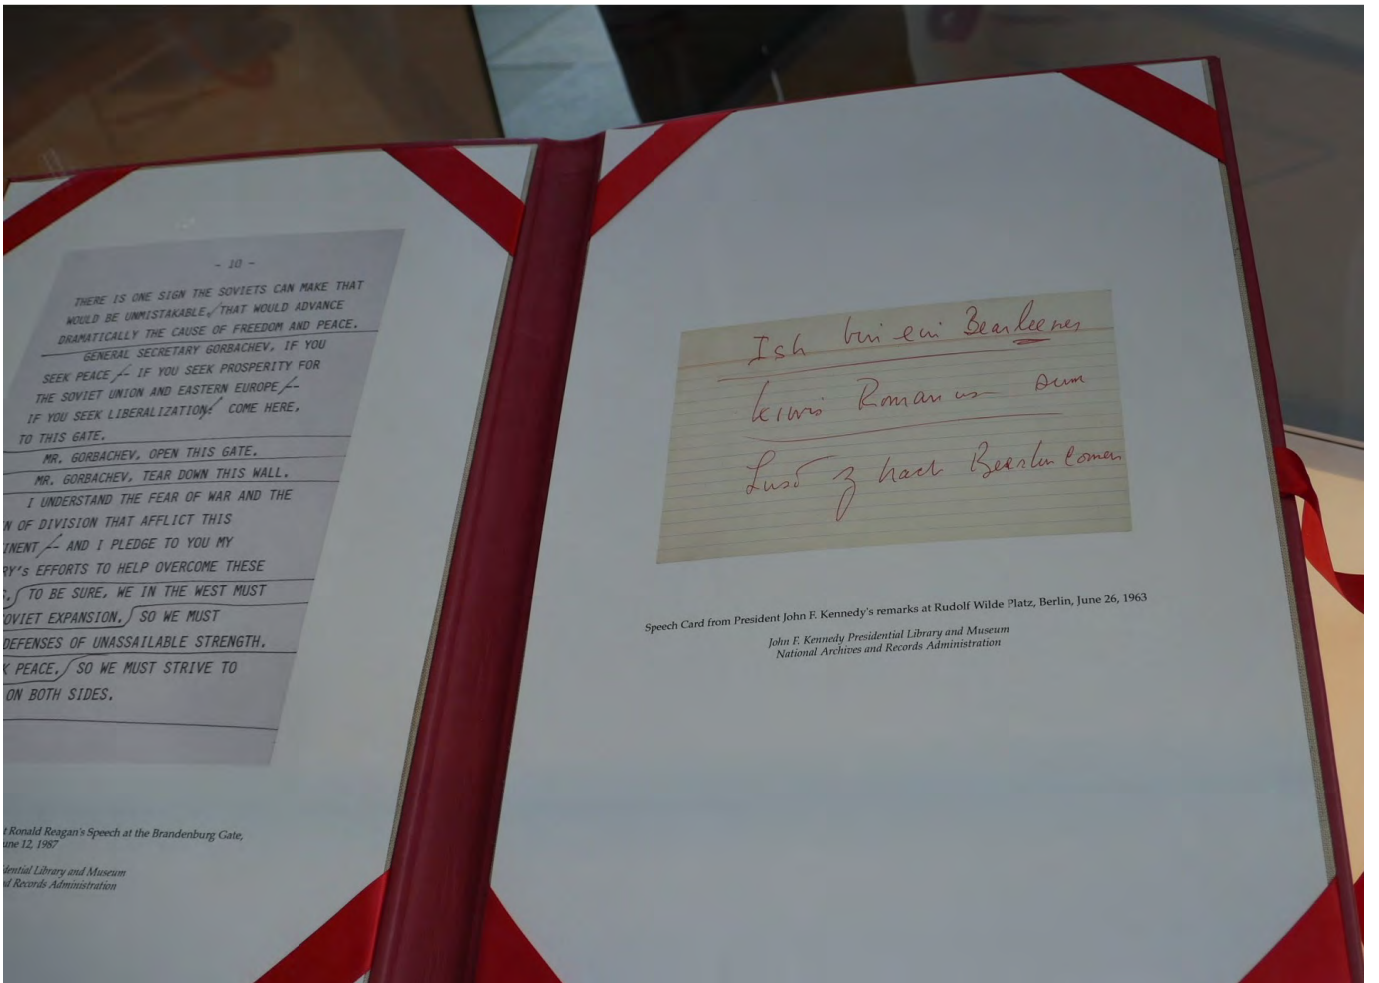 - 10 -
THERE IS ONE SIGN THE SOVIETS CAN MAKE THAT
WOULD BE UNMISTAKABLE, THAT WOULD ADVANCE
DRAMATICALLY THE CAUSE OF FREEDOM AND PEACE.
GENERAL SECRETARY GORBACHEV, IF YOU
SEEK PEACE -- IF YOU SEEK PROSPERITY FOR
THE SOVIET UNION AND EASTERN EUROPE --
IF YOU SEEK LIBERALIZATION: COME HERE,
TO THIS GATE.
MR. GORBACHEV, OPEN THIS GATE.
MR. GORBACHEV, TEAR DOWN THIS WALL.
I UNDERSTAND THE FEAR OF WAR AND THE
N OF DIVISION THAT AFFLICT THIS
INENT -- AND I PLEDGE TO YOU MY
RY's EFFORTS TO HELP OVERCOME THESE
S. TO BE SURE, WE IN THE WEST MUST
OVIET EXPANSION. SO WE MUST
DEFENSES OF UNASSAILABLE STRENGTH.
K PEACE, SO WE MUST STRIVE TO
ON BOTH SIDES.
t Ronald Reagan's Speech at the Brandenburg Gate,
une 12, 1987
idential Library and Museum
d Records Administration
Ish bin ein Bearleener
kiwis Romanus sum
Lusd z nach Bearlin comen
Speech Card from President John F. Kennedy's remarks at Rudolf Wilde Platz, Berlin, June 26, 1963
John F. Kennedy Presidential Library and Museum
National Archives and Records Administration